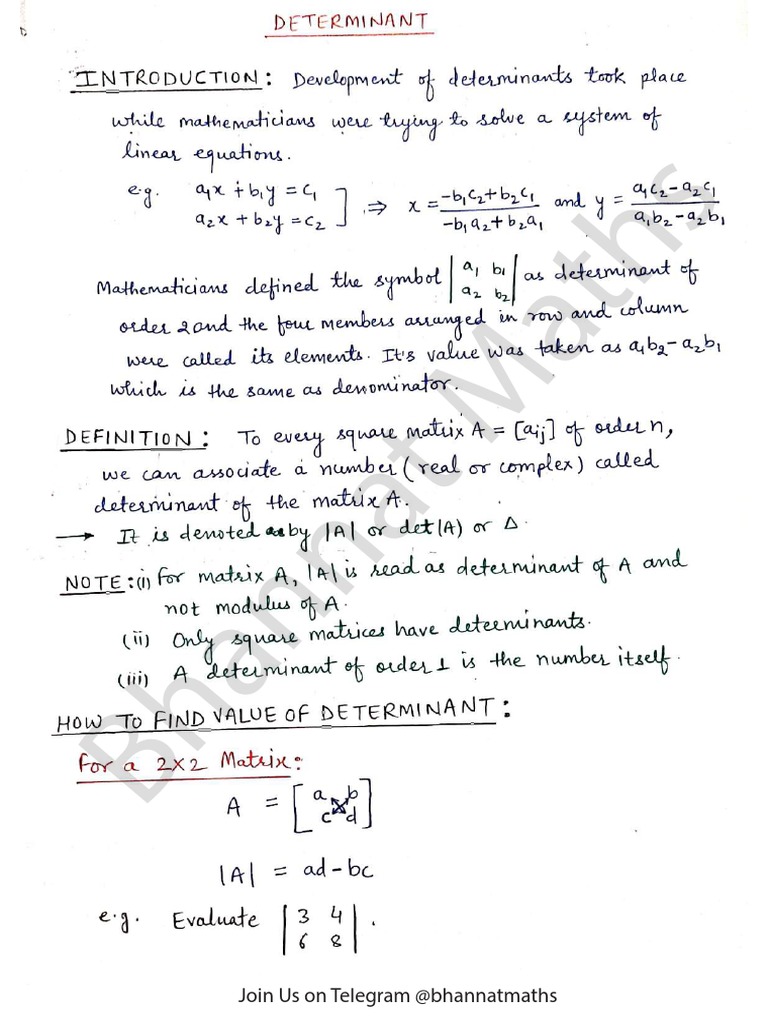 DETERMINANT
INTRODUCTION: Development of determinants took place
while mathematicians were trying to solve a system of
linear equations.
e.g. a₁x + b₁y = c₁
a₂x + b₂y = c₂ ] ⇒ x = (-b₁c₂+b₂c₁)/(-b₁a₂+b₂a₁) and y = (a₁c₂-a₂c₁)/(a₁b₂-a₂b₁)
Mathematicians defined the symbol |a₁ b₁
a₂ b₂| as determinant of
order 2 and the four members arranged in row and column
were called its elements. It's value was taken as a₁b₂-a₂b₁
which is the same as denominator.
DEFINITION: To every square matrix A = [aij] of order n,
we can associate a number (real or complex) called
determinant of the matrix A.
→ It is denoted by |A| or det(A) or Δ.
NOTE: (i) For matrix A, |A| is read as determinant of A and
not modulus of A.
(ii) Only square matrices have determinants.
(iii) A determinant of order 1 is the number itself.
HOW TO FIND VALUE OF DETERMINANT:
For a 2x2 Matrix:
A = [a b
c d]
|A| = ad-bc
e.g. Evaluate |3 4
6 8|.
Bhannat Maths
Join Us on Telegram @bhannatmaths